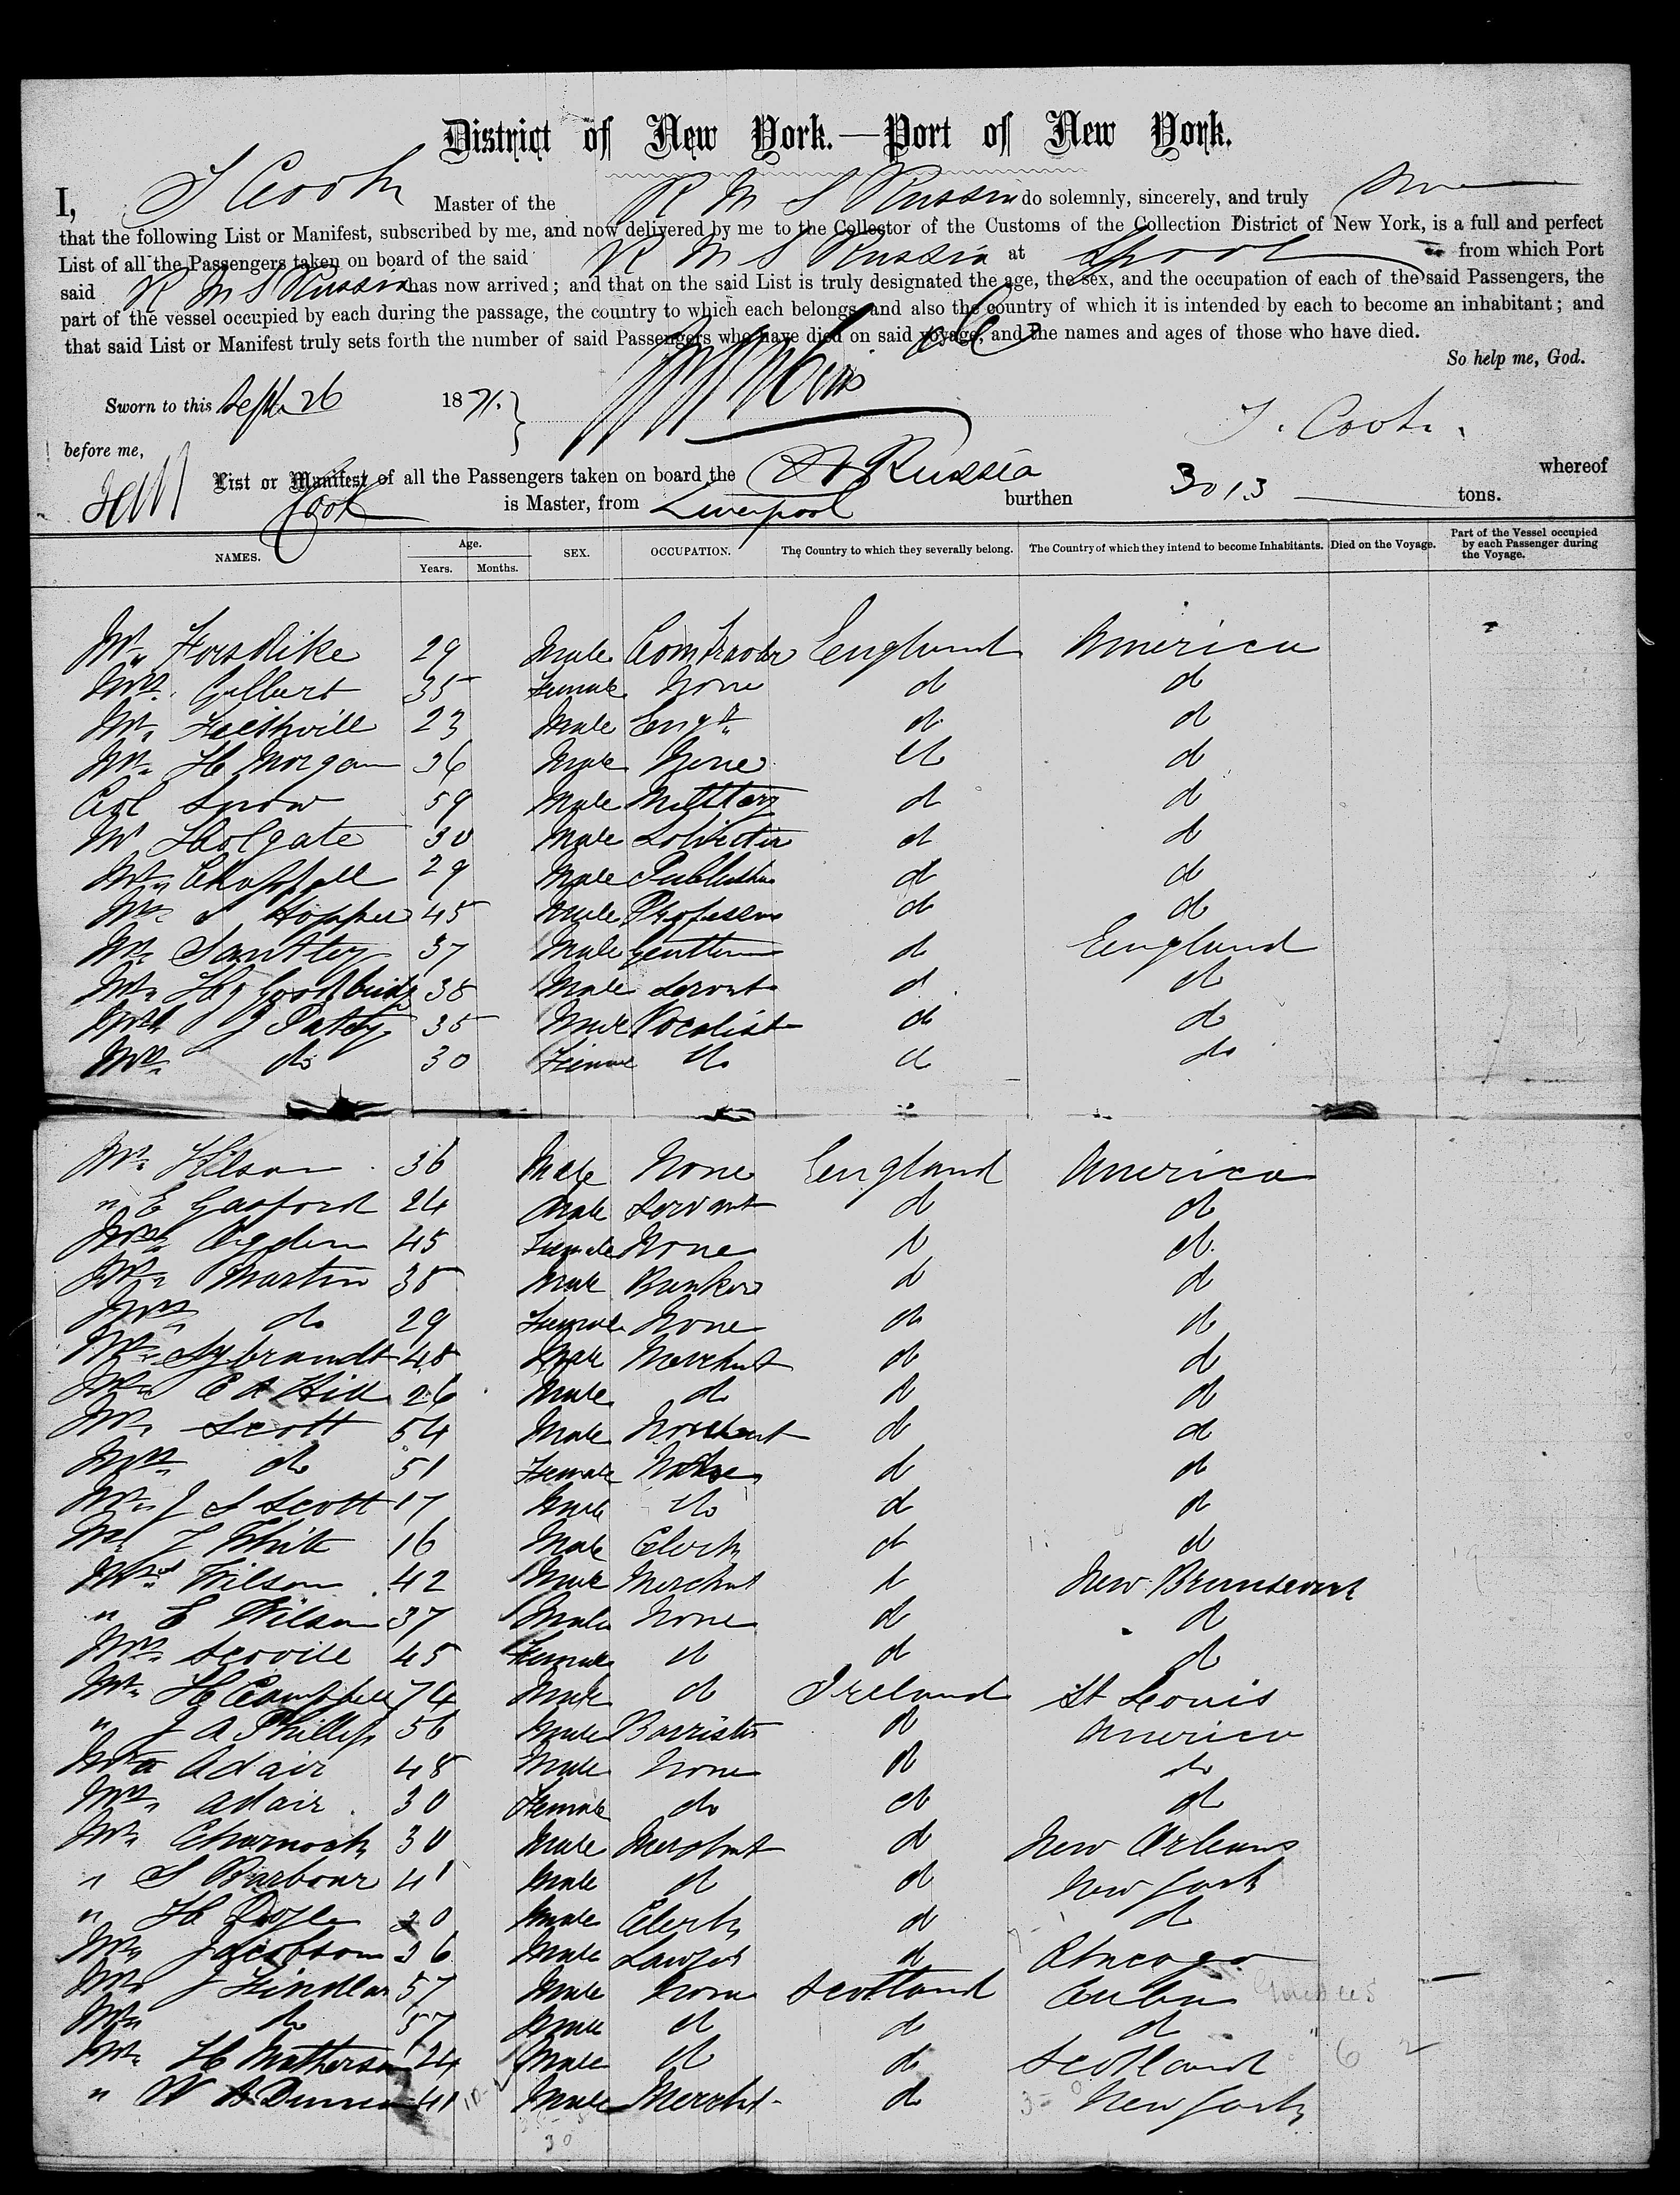 District of New York.—Port of New York.
I, T Cook Master of the R M S Russia do solemnly, sincerely, and truly
that the following List or Manifest, subscribed by me, and now delivered by me to the Collector of the Customs of the Collection District of New York, is a full and perfect
List of all the Passengers taken on board of the said R M S Russia at Lpool from which Port
said R M S Russia has now arrived; and that on the said List is truly designated the age, the sex, and the occupation of each of the said Passengers, the
part of the vessel occupied by each during the passage, the country to which each belongs, and also the country of which it is intended by each to become an inhabitant; and
that said List or Manifest truly sets forth the number of said Passengers who have died on said voyage, and the names and ages of those who have died.
So help me, God.
Sworn to this Sept 26 1871.
T. Cook.
before me,
List or Manifest of all the Passengers taken on board the Russia whereof
Cook is Master, from Liverpool burthen 3013 tons.
NAMES. Age. Years. Months. SEX. OCCUPATION. The Country to which they severally belong. The Country of which they intend to become Inhabitants. Died on the Voyage. Part of the Vessel occupied by each Passenger during the Voyage.
Mr Forsdike 29 Male England America
Mrs Gilbert 35 Female None do do
Mr 23 Male do do
Mr H Morgan 36 Male None do do
Col Snow 59 Male Military do do
Mr Holgate 30 Male Solicitor do do
Mr Chappell 29 Male Publisher do do
Mr 45 Male Professor do do
Mr Santley 37 Male Gentleman do England
Mr 38 Male Servant do do
Mr J Patey 35 Male Vocalist do do
Mrs do 30 Female do do do
Mr 36 Male None England America
" E Gasford 24 Male Servant do do
Mrs Ogden 45 Female None do do
Mr Martin 38 Male Banker do do
Mrs do 29 Female None do do
Mr Sybrandt 48 Male Merchant do do
Mr E A Hill 26 Male do do do
Mr Scott 54 Male Merchant do do
Mrs do 51 Female None do do
Mr J S Scott 17 Male do do do
Mr J White 16 Male Clerk do do
Wilson 42 Male Merchant do New Brunswick
" E Wilson 37 Male None do do
Mrs Scovil 45 Female do do do
Mr H Campbell 74 Male do Ireland St Louis
" J A Phillips 56 Male Barrister do America
Mr Adair 48 Male None do do
Mrs Adair 30 Female do do do
Mr Charnock 30 Male Merchant do New Orleans
" S Barbour 41 Male do do New York
" H Doyle 20 Male Clerk do do
Mr Jacobson 36 Male Lawyer do Chicago
Mr J Findlar 57 Male None Scotland Cuba
do 57 Male do do do
Mr H Matherson 24 Male do do Scotland
" W A Duncan 41 Male Mercht do New York